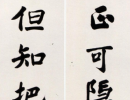 正可隱
但知把